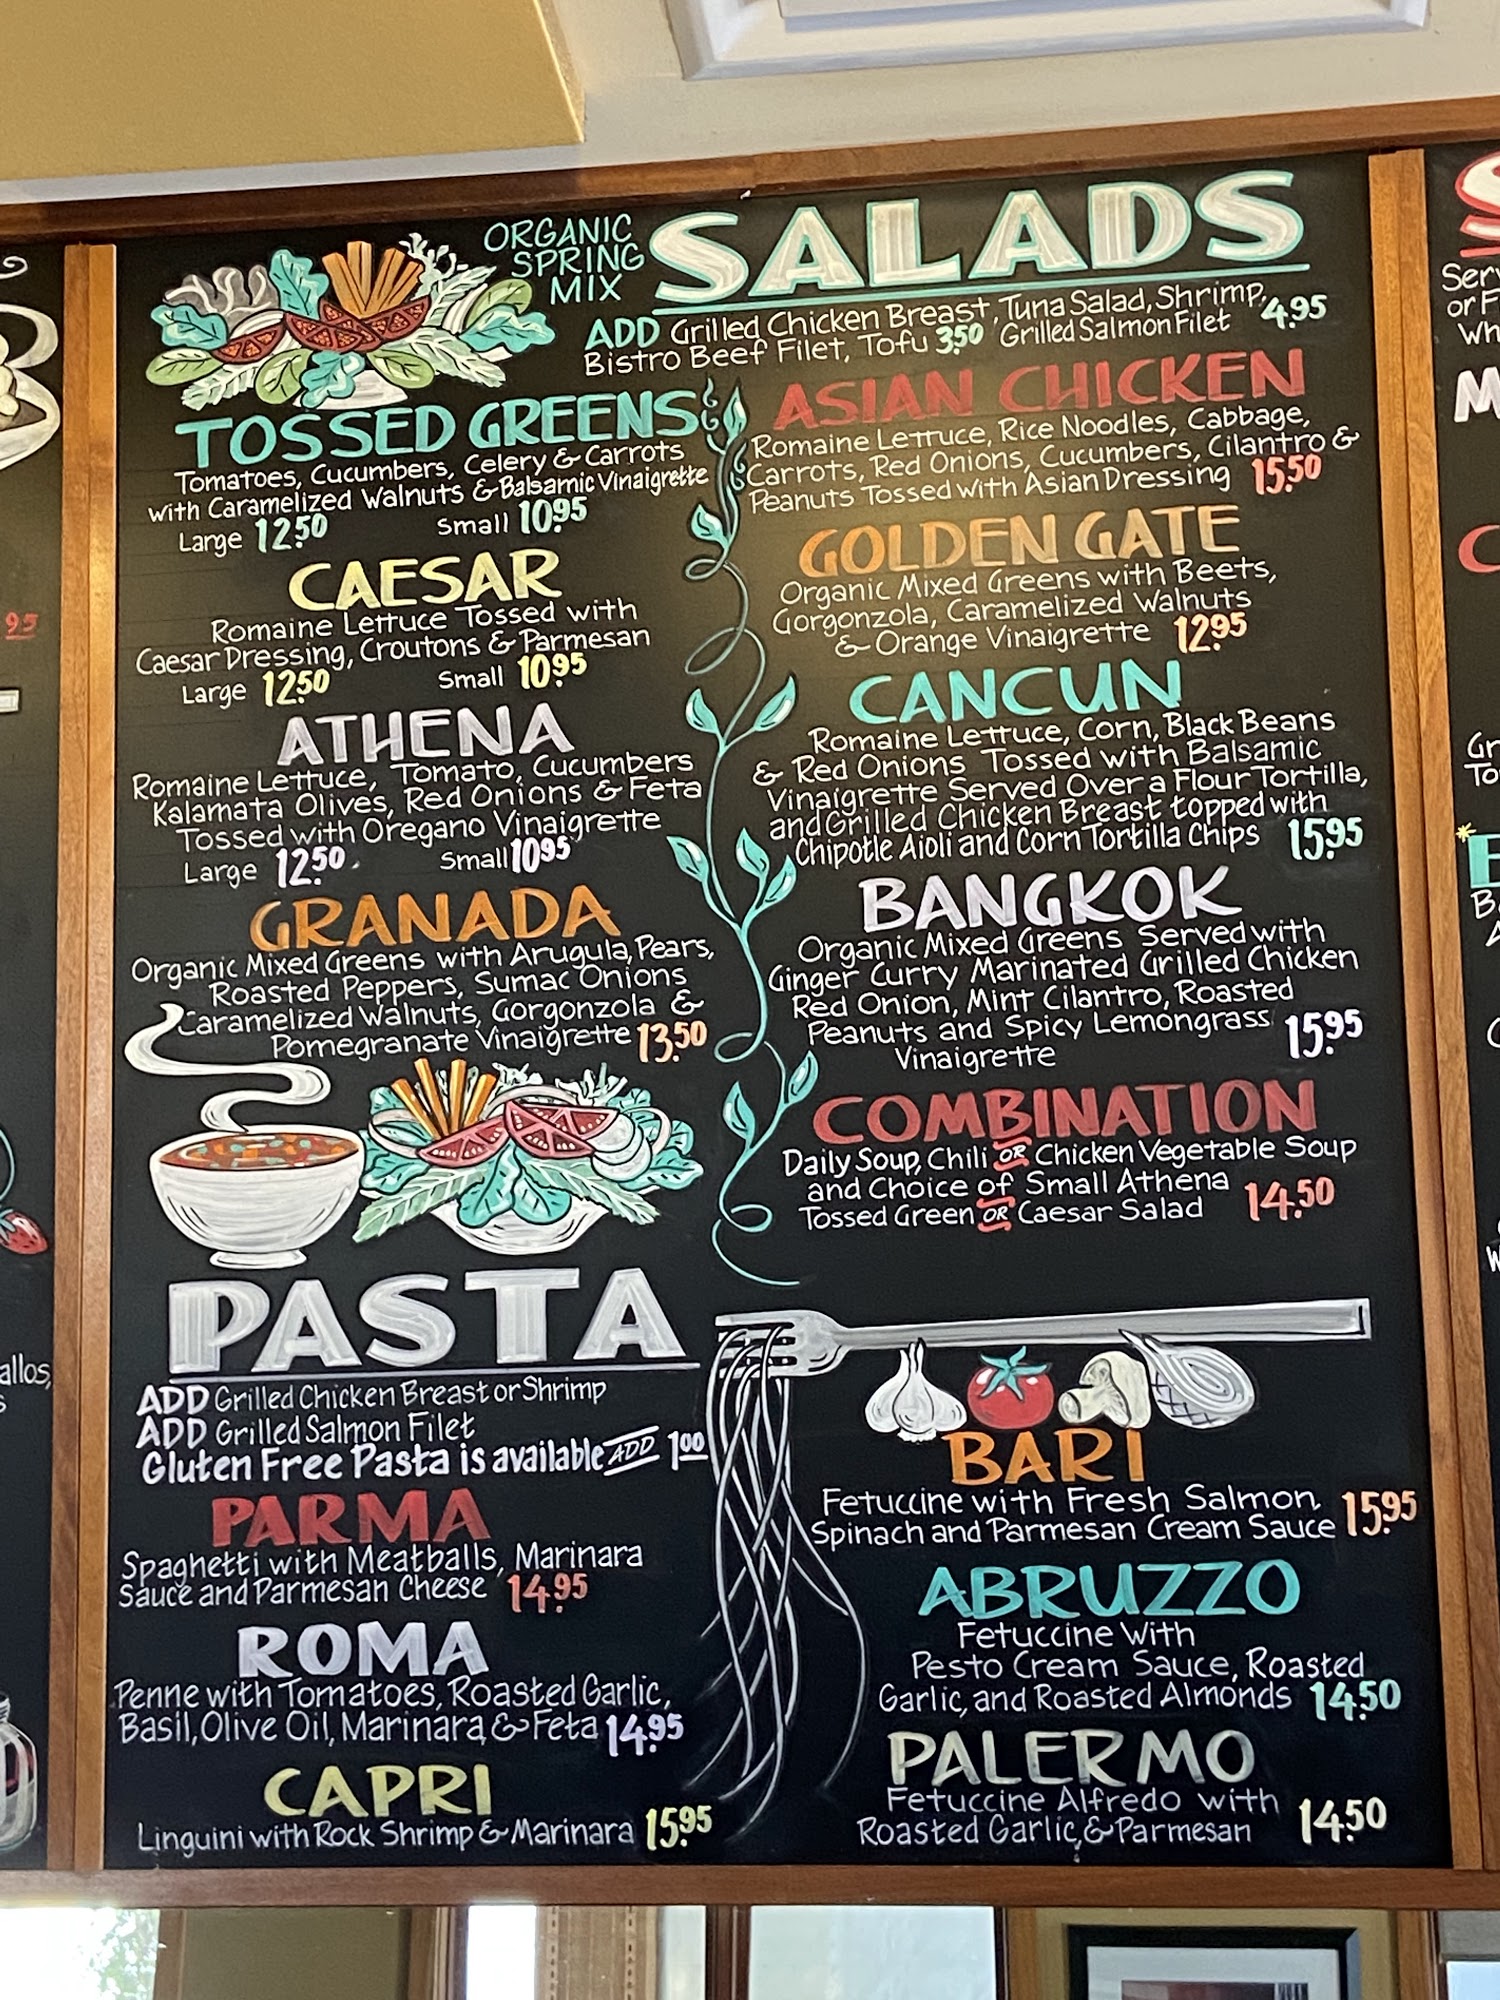 ORGANIC
SPRING
MIX
SALADS
ADD Grilled Chicken Breast, Tuna Salad, Shrimp,
Bistro Beef Filet, Tofu 3.50 Grilled Salmon Filet 4.95
TOSSED GREENS
Tomatoes, Cucumbers, Celery & Carrots
with Caramelized Walnuts & Balsamic Vinaigrette
Large 12.50 Small 10.95
CAESAR
Romaine Lettuce Tossed with
Caesar Dressing, Croutons & Parmesan
Large 12.50 Small 10.95
ATHENA
Romaine Lettuce, Tomato, Cucumbers
Kalamata Olives, Red Onions & Feta
Tossed with Oregano Vinaigrette
Large 12.50 Small 10.95
GRANADA
Organic Mixed Greens with Arugula, Pears,
Roasted Peppers, Sumac Onions
Caramelized Walnuts, Gorgonzola &
Pomegranate Vinaigrette 13.50
ASIAN CHICKEN
Romaine Lettuce, Rice Noodles, Cabbage,
Carrots, Red Onions, Cucumbers, Cilantro &
Peanuts Tossed with Asian Dressing 15.50
GOLDEN GATE
Organic Mixed Greens with Beets,
Gorgonzola, Caramelized Walnuts
& Orange Vinaigrette 12.95
CANCUN
Romaine Lettuce, Corn, Black Beans
& Red Onions Tossed with Balsamic
Vinaigrette Served Over a Flour Tortilla,
and Grilled Chicken Breast topped with
Chipotle Aioli and Corn Tortilla Chips 15.95
BANGKOK
Organic Mixed Greens Served with
Ginger Curry Marinated Grilled Chicken
Red Onion, Mint Cilantro, Roasted
Peanuts and Spicy Lemongrass
Vinaigrette 15.95
COMBINATION
Daily Soup, Chili OR Chicken Vegetable Soup
and Choice of Small Athena
Tossed Green OR Caesar Salad 14.50
PASTA
ADD Grilled Chicken Breast or Shrimp
ADD Grilled Salmon Filet
Gluten Free Pasta is available ADD 1.00
PARMA
Spaghetti with Meatballs, Marinara
Sauce and Parmesan Cheese 14.95
ROMA
Penne with Tomatoes, Roasted Garlic,
Basil, Olive Oil, Marinara, & Feta 14.95
CAPRI
Linguini with Rock Shrimp & Marinara 15.95
BARI
Fetuccine with Fresh Salmon.
Spinach and Parmesan Cream Sauce 15.95
ABRUZZO
Fetuccine With
Pesto Cream Sauce, Roasted
Garlic, and Roasted Almonds 14.50
PALERMO
Fetuccine Alfredo with
Roasted Garlic, & Parmesan 14.50